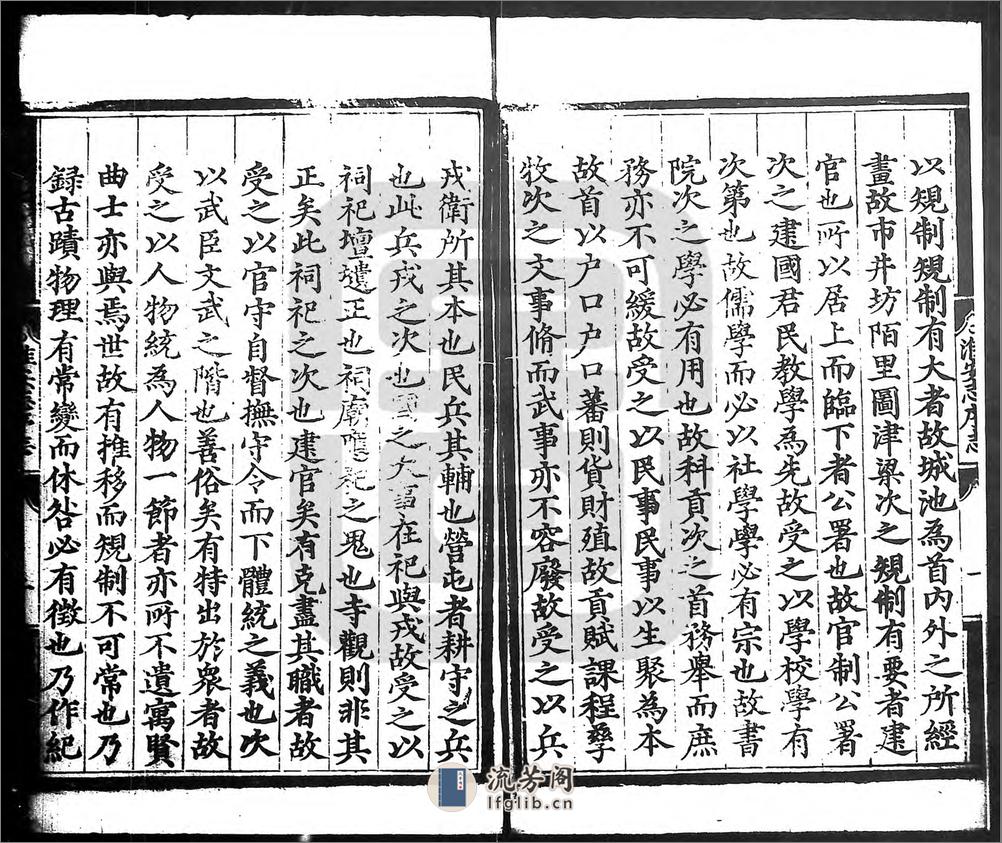 以規制規制有大者故城池為首內外之所經
畫故市井坊陌里圖津梁次之規制有要者建
官也所以居上而臨下者公署也故官制公署
次之建國君民教學為先故受之以學校學有
次第也故儒學而必以社學學必有宗也故書
院次之學必有用也故科貢次之首務舉而庶
務亦不可緩故受之以民事民事以生聚為本
故首以户口户口蕃則貨財殖故貢賦課程孳
牧次之文事脩而武事亦不容廢故受之以兵
戎衛所其本也民兵其輔也營屯者耕守之兵
也此兵戎之次也國之大事在祀與戎故受之以
祠祀壇壝正也祠廟應祀之鬼也寺觀則非其
正矣此祠祀之次也建官矣有克盡其職者故
受之以官守自督撫守令而下體統之義也次
以武臣文武之階也善俗矣有特出於衆者故
受之以人物統為人物一節者亦所不遺寓賢
曲士亦與焉世故有推移而規制不可常也乃
録古蹟物理有常變而休咎必有徵也乃作紀
淮安志序志
一
流芳阁
lfglib.cn